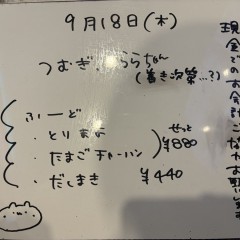 9月18日(木)
つむぎ、ららちゃん
(書き次第…?)
ふーど
・とりまよ
・たまごチャーハン
せっと
¥880
・だしまき ¥440
現金でのお会計